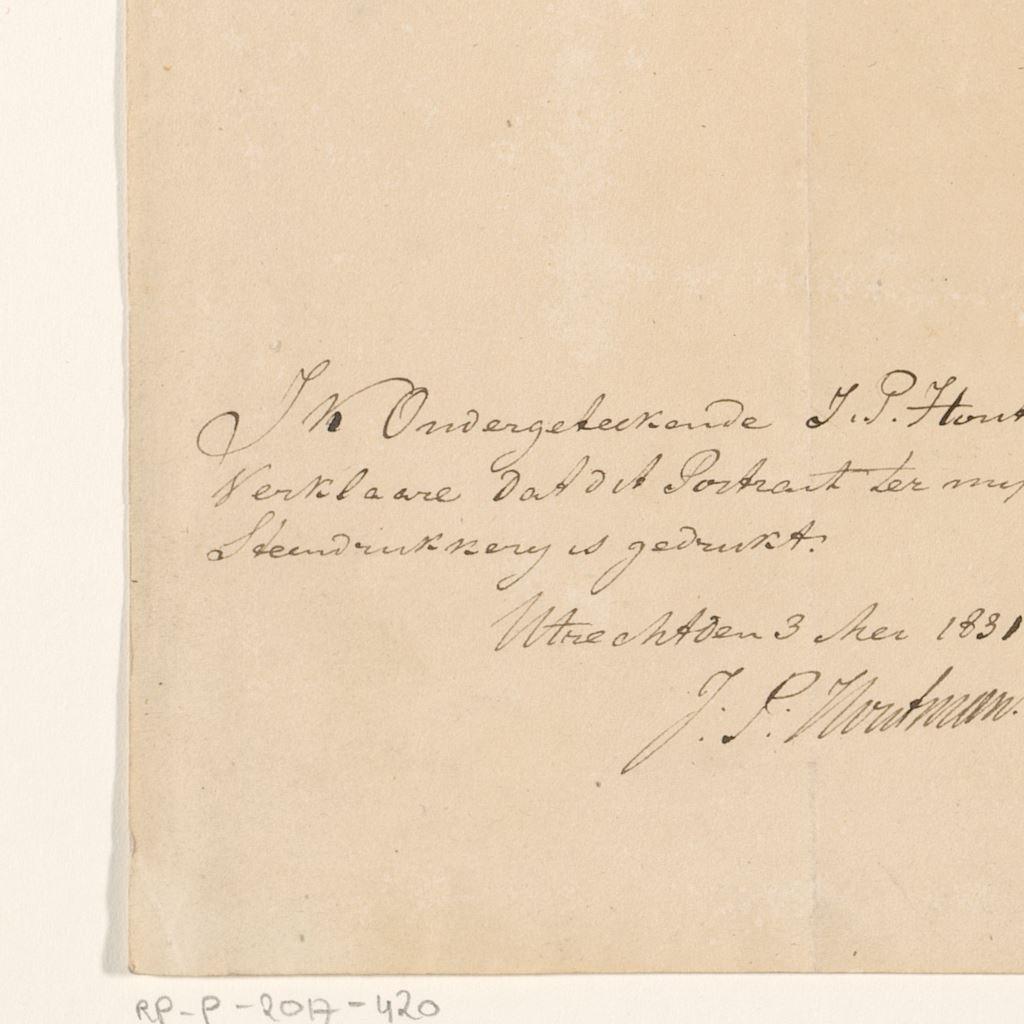 Ik Ondergeteekende J. P. Hout
Verklaare dat dit Portrait ter my
Steendrukkery is gedrukt.
Utrecht den 3 Mei 1831
J. P. Houtman.
RP-P-2017-420